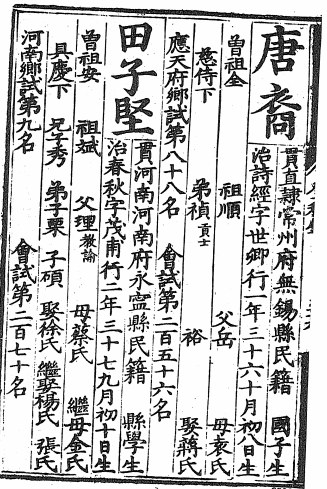 唐裔
貫直隸常州府無錫縣民籍 國子生
治詩經字世卿行一年三十六十月初八日生
曾祖全 祖順 父岳 母袁氏
慈侍下 弟禎貢士 裕 娶蔣氏
應天府鄉試第八十八名 會試第二百五十六名
田子堅
貫河南河南府永寧縣民籍 縣學生
治春秋字茂甫行二年三十七九月初十日生
曾祖安 祖斌 父理教諭 母蔡氏 繼母金氏
具慶下 兄子秀 弟子粟 子碩 娶徐氏 繼娶楊氏 張氏
河南鄉試第九名 會試第二百七十名